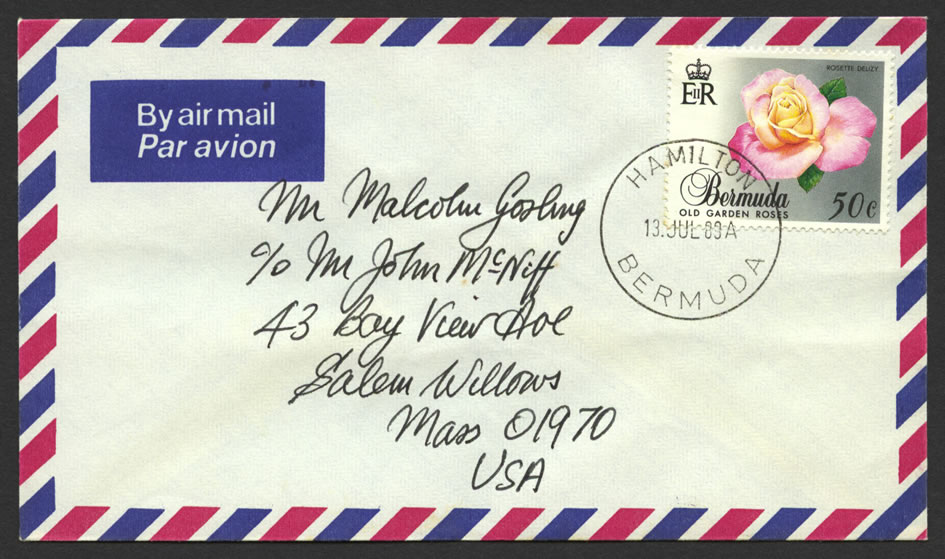 By air mail
Par avion
ROSETTE DELIZY
EIIR
Bermuda
OLD GARDEN ROSES
50c
HAMILTON
13.JUL 89 A
BERMUDA
Mr Malcolm Gosling
c/o Mr John McNiff
43 Bay View Ave
Salem Willows
Mass 01970
USA